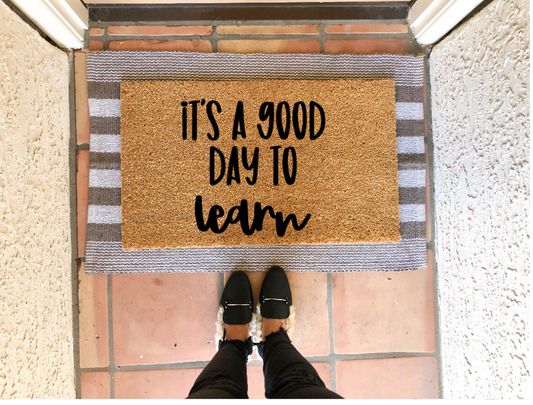 IT'S A GOOD
DAY TO
learn